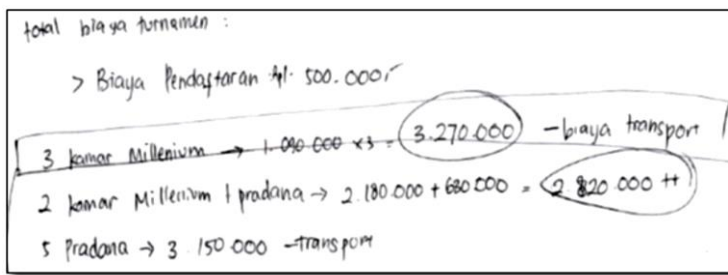 total biaya turnamen :
> Biaya Pendaftaran Rp. 500.000,-
3 kamar Millenium → 1.090.000 x3 = 3.270.000 - biaya transport
2 kamar Millenium 1 pradana → 2.180.000 + 680.000 = 2.820.000 ++
5 Pradana → 3.150.000 - transport